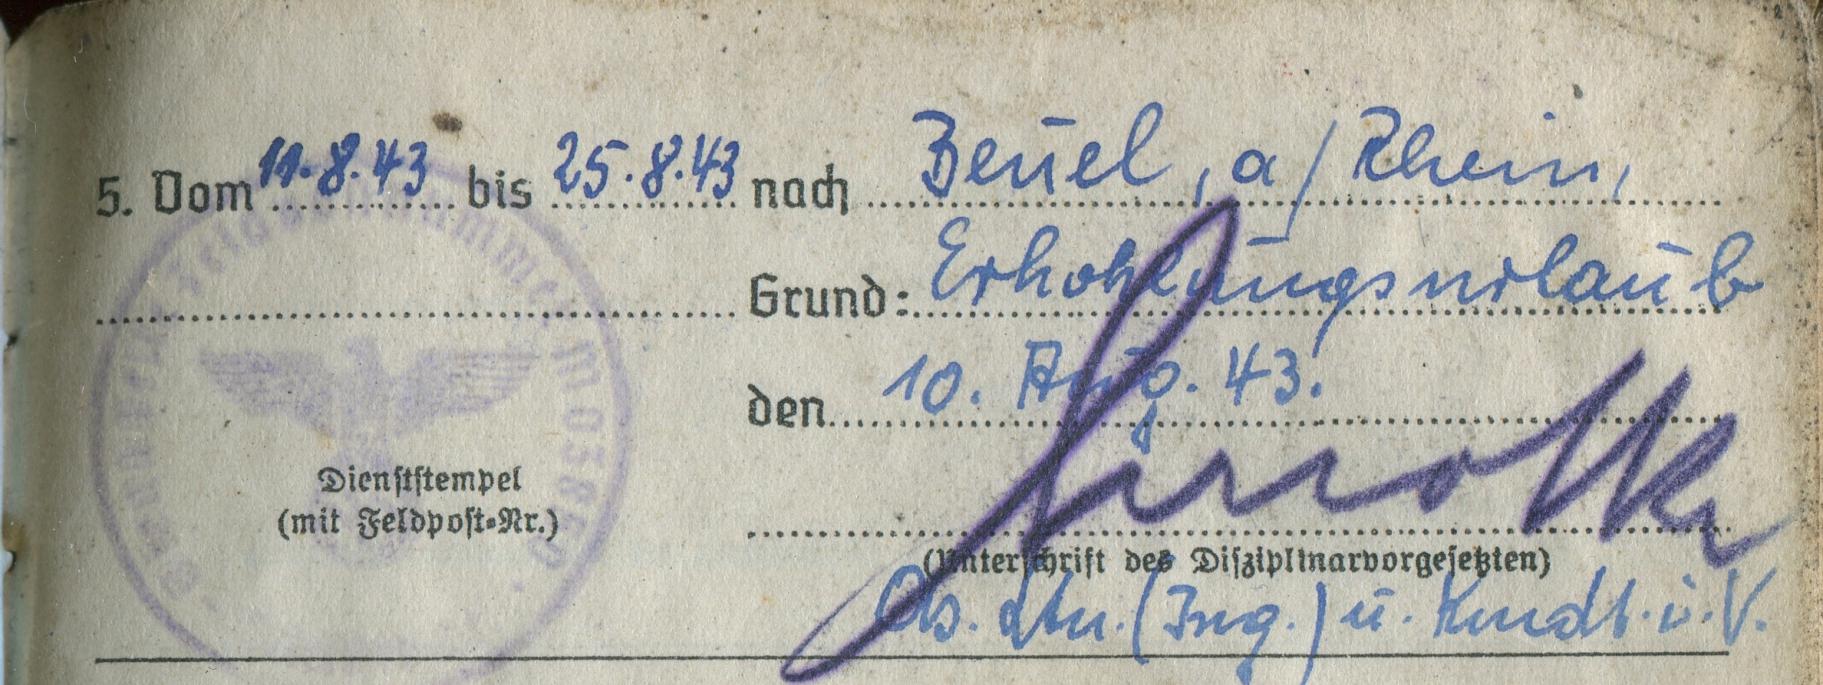 5. Vom 11.8.43 bis 25.8.43 nach Beuel, a/Rhein,
Grund: Erhohlungsurlaub
den 10. Aug. 43.
Dienststempel
(mit Feldpost-Nr.)
(Unterschrift des Disziplinarvorgesetzten)
Ob. Ltn. (Ing.) u. Kmdt. i. V.
M 03860